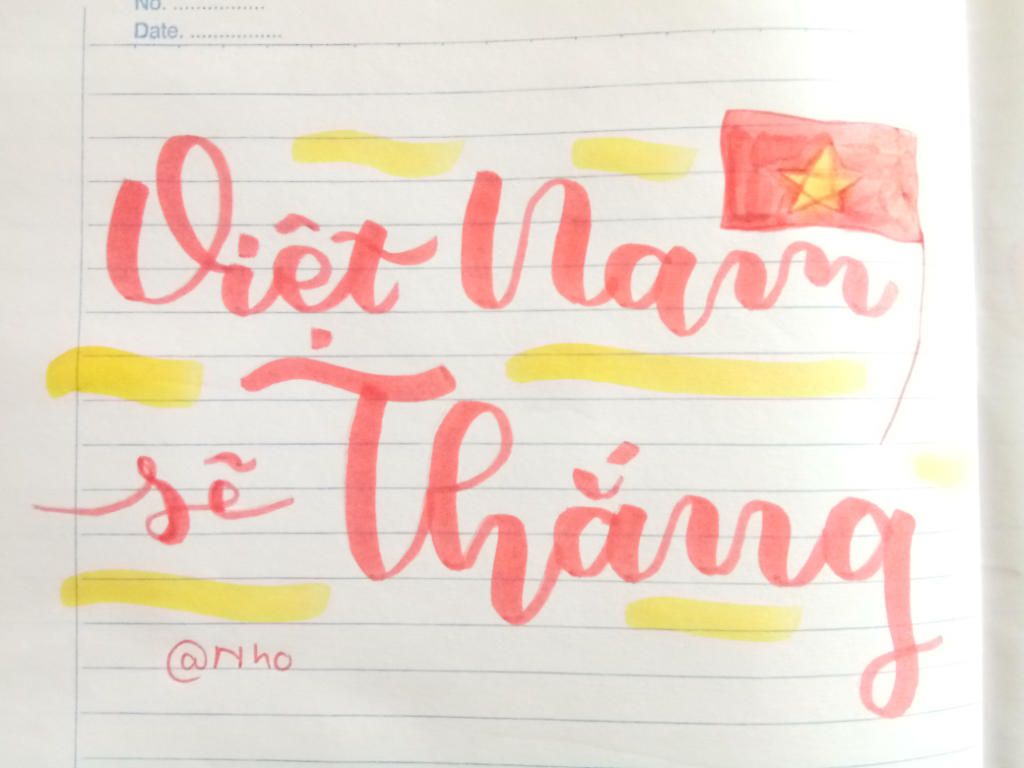 No. ................
Date. ................
Việt Nam
sẽ Thắng
@Nho